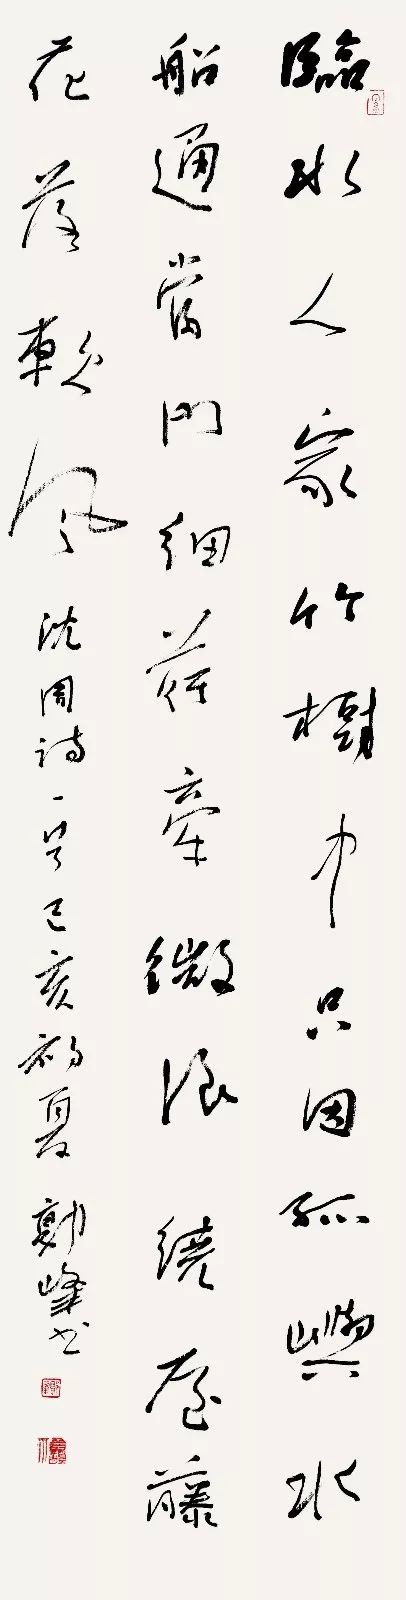 臨水人家竹樹中只因孤嶼水
船通當門細荇牽微浪繞屋藤
花落軟風 沈周詩一首己亥初夏 峰书